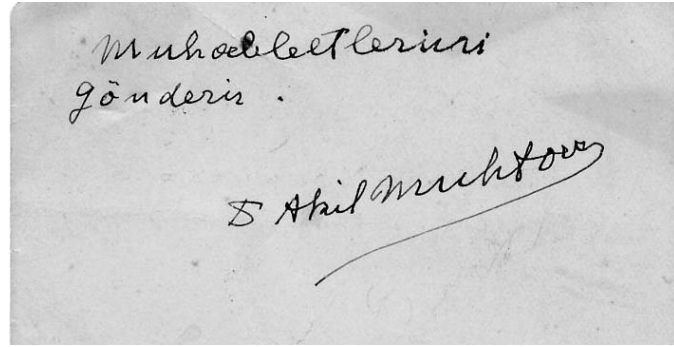 Muhabbetlerini
gönderir.
D Akil Muhtar